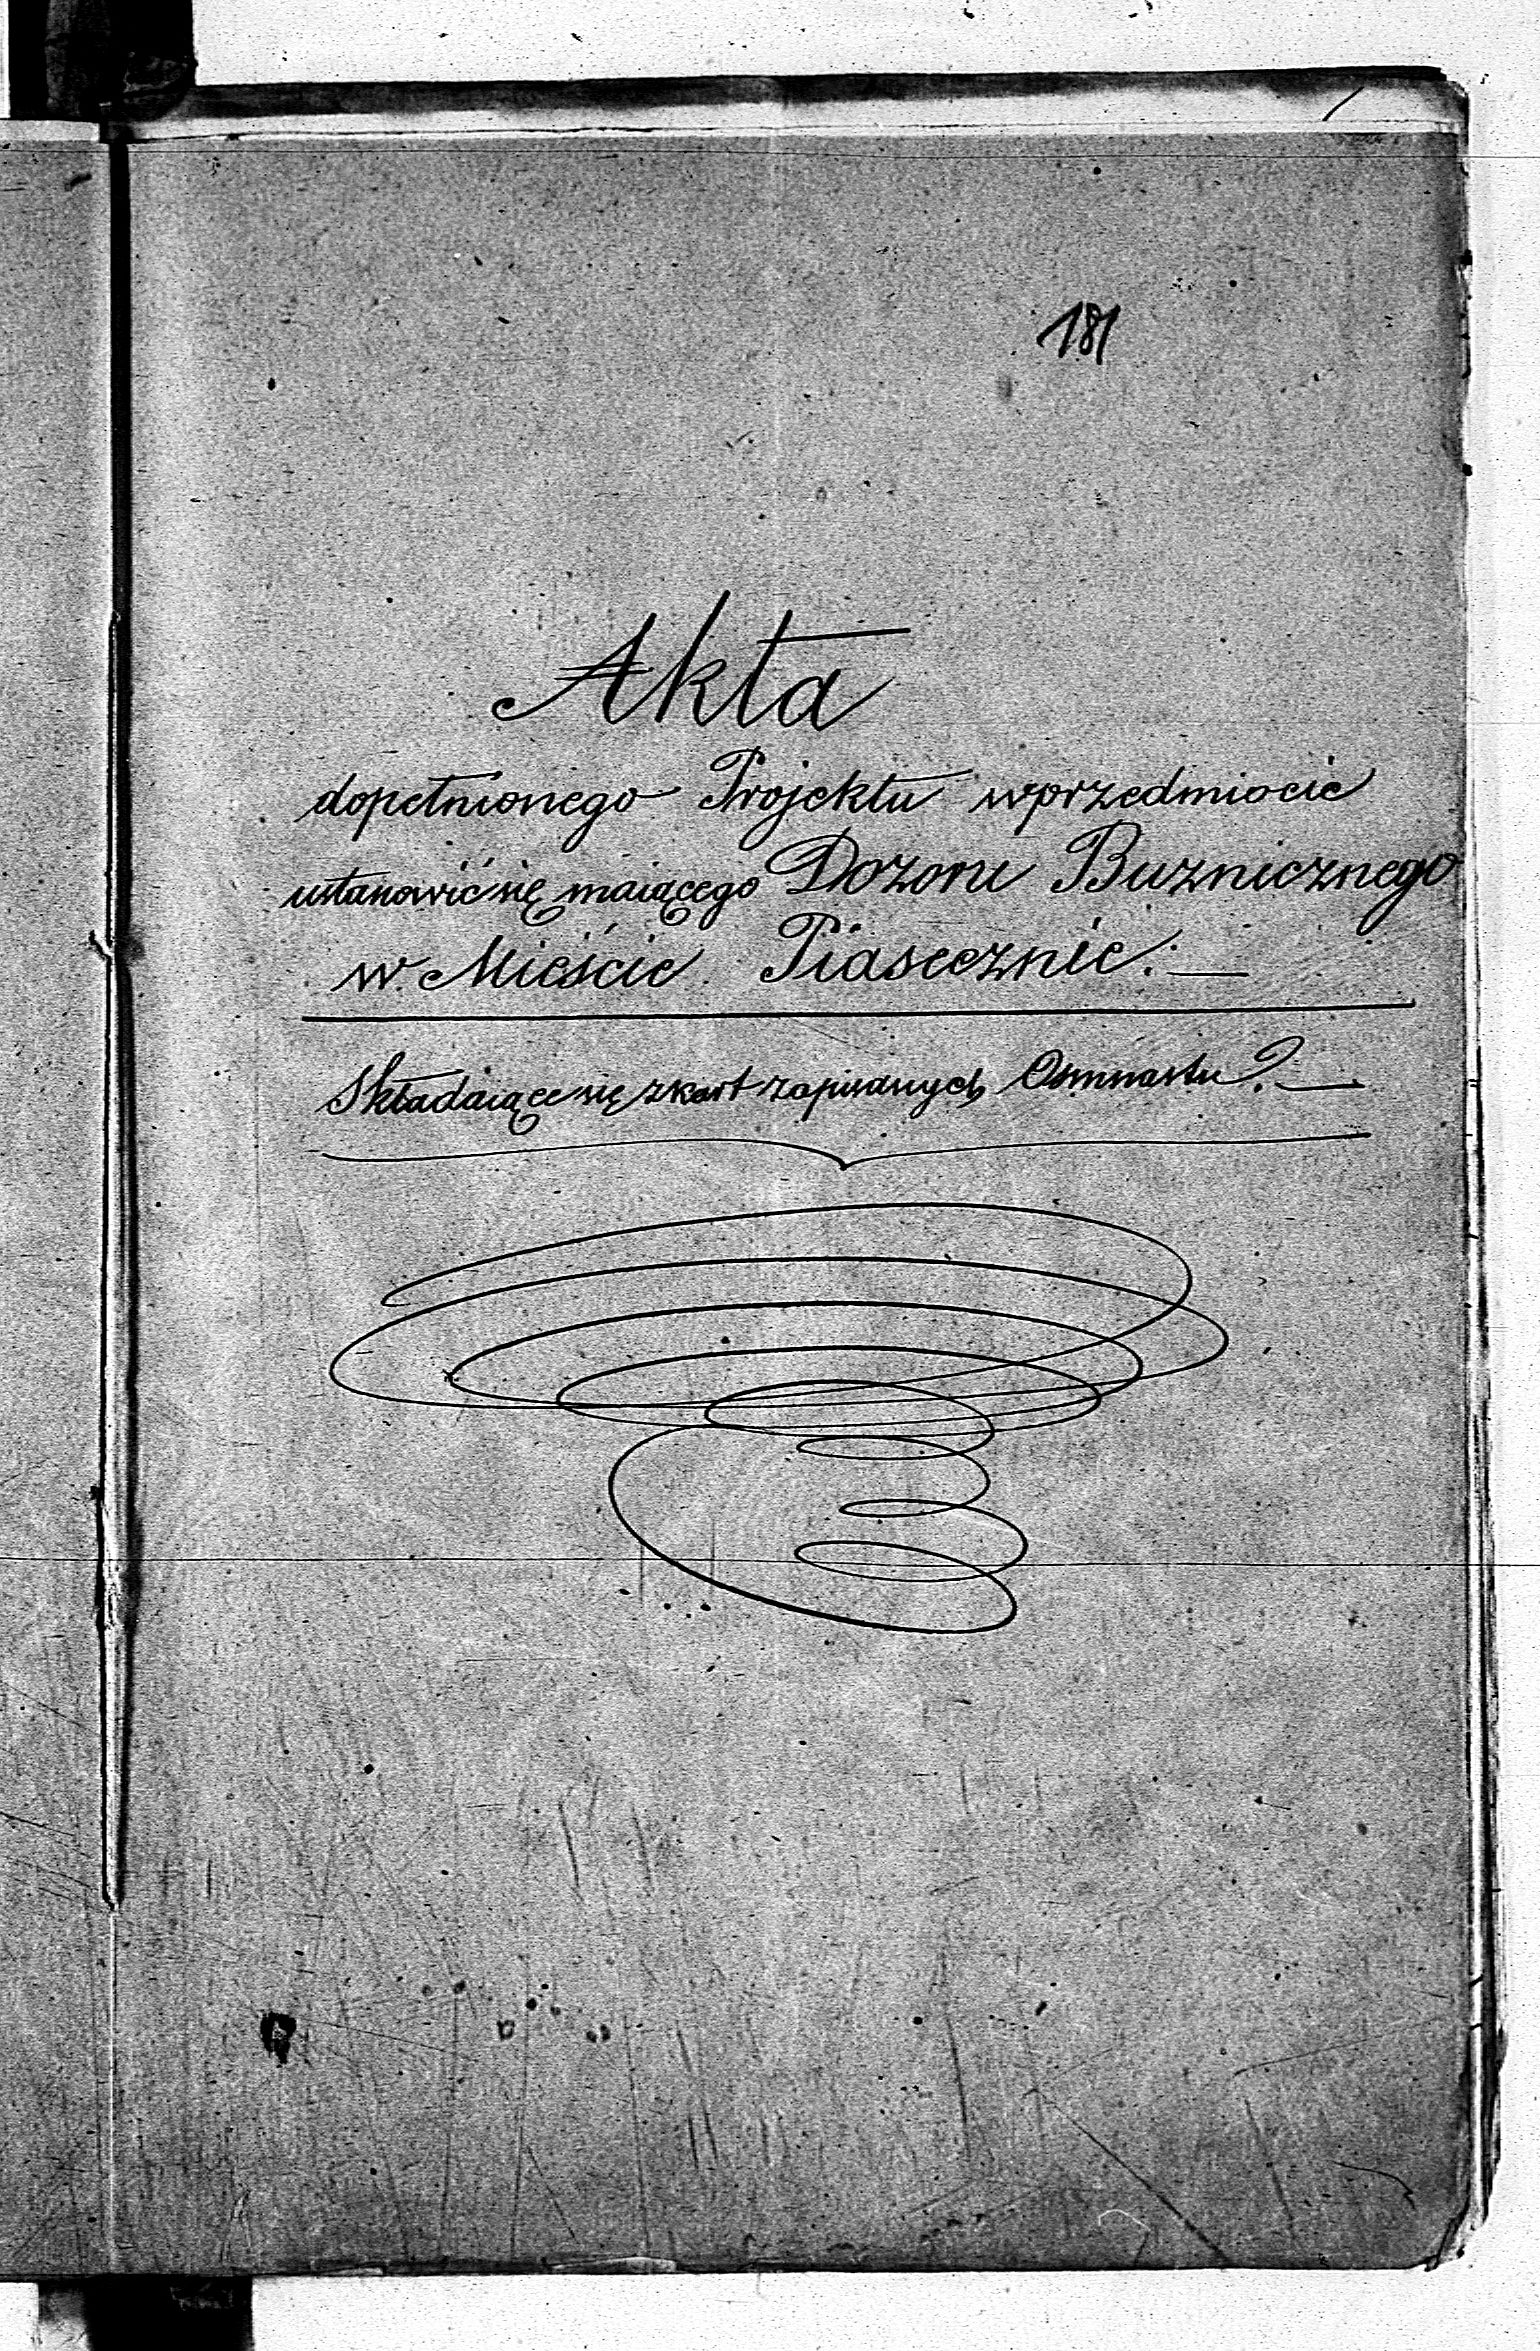 181
Akta
dopełnionego Projektu wprzedmiocie
ustanowić się maiącego Dozoru Buznicznego
w Mieście Piasecznie.
Składaiące się zkart zapisanych Osmnastu.